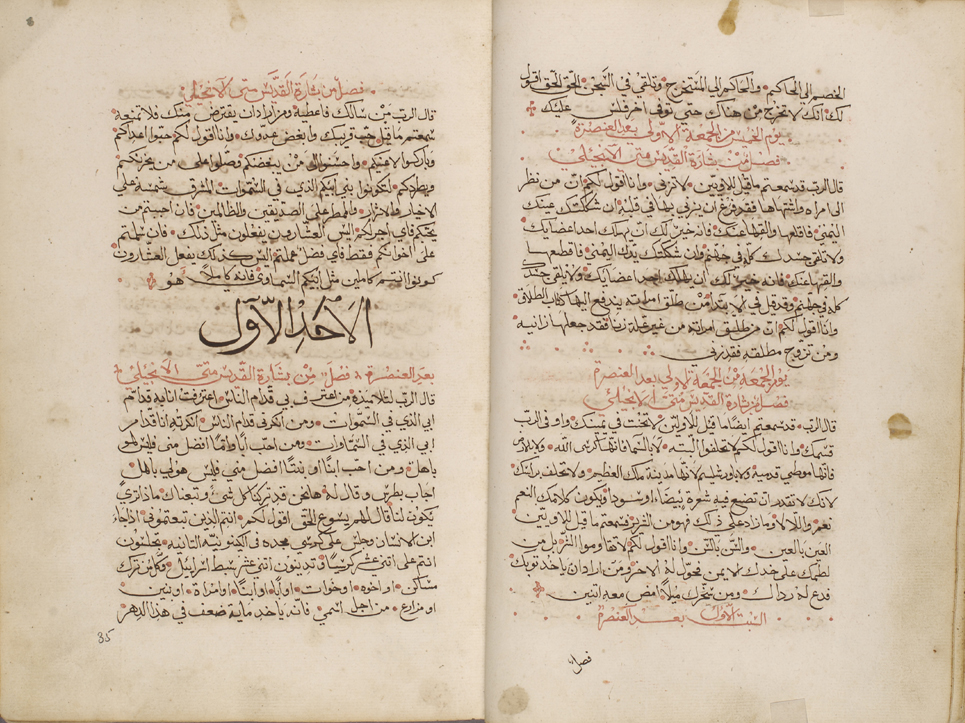 الخصم الى الحاكم والحاكم الى المستخرج وتلقى في السجن الحق الحق اقول
لك انك لا تخرج من هناك حتى توفى اخر فلس عليك
يوم الخميس من الجمعة الاولى بعد العنصرة
فصل من بشارة القديس متى الانجيلي
قال الرب قد سمعتم ما قيل للاولين لا تزنى وانا اقول لكم ان من نظر
الى امراه واشتهاها فقد فرغ ان يزنى بها في قلبه ان شككتك عينك
اليمنى فاقلعها والقها عنك فانه خير لك ان يهلك احد اعضايك
ولا تلقى جسدك كله في جهنم فان شككتك يدك اليمنى فاقطعها
والقها عنك فانه خير لك ان يهلك احد اعضآيك ولا يلقى جسدك
كله في جهنم وقد قيل في من طلق امراته يدفع اليها كتاب الطلاق
وانا اقول لكم ان من طلق امراته من غير علة زنا فقد جعلها زانيه
ومن تزوج مطلقه فقد زنى
يوم الجمعه من الجمعة الاولى بعد العنصرة
فصل من بشارة القديس متى الانجيلي
قال الرب قد سمعتم ايضًا ما قيل للاولين لا تحنث في يمينك واوفي الرب
قسمك وانا اقول لكم لا تحلفوا البتة لا بالسما فانها كرسي الله ولا بالارض
فانها موطى قدميه ولا باورشليم لانها مدينة ملك العظيم ولا تحلف براسك
لانك لا تقدر ان تصنع فيه شعرة بيضاء او سودا ويكون كلامكم النعم
نعم واللا لا وما زاد على ذلك فهو من الشرير سمعتم ما قيل للاولين
العين بالعين والسن بالسن وانا اقول لكم لا تقاوموا الشر بل من
لطمك على خدك الايمن فحول له الاخر ومن اراد ان ياخذ ثوبك
فدع له رداك ومن سخرك ميلًا امض معه اثنين
السبت الاول بعد العنصرة
فصل
فصل من بشارة القديس متى الانجيلي
قال الرب من سالك فاعطيه ومن اراد ان يقترض منك فلا تمنعه
سمعتم ما قيل حب قريبك وابغض عدوك وانا اقول لكم حبوا اعداكم
وباركوا لاعنيكم واحسنوا الى من يبغضكم وصلوا على من يحزنكم
ويطردكم لتكونوا بني ابيكم الذي في السموات المشرق شمسه على
الاخيار والاشرار والممطر على الصديقين والظالمين فان احببتم من
يحبكم فاي اجر لكم اليس العشارون يفعلون مثل ذلك فان سلمتم
على اخوانكم فقط فاي فضل عملتم اليس كذلك يفعل العشارون
كونوا انتم كاملين مثل ابيكم السماوي فانه كاملًا هو
الاحد الاول
بعد العنصرة فصل من بشارة القديس متى الانجيلي
قال الرب لتلاميذه من اعترف بي قدام الناس اعترفت انا به قدام
ابي الذي في السموات ومن انكرني قدام الناس انكرته انا قدام
ابي الذي في السماوات ومن احب ابًا وامًا افضل مني فليس لي
باهل ومن احب ابنًا او بنتًا افضل مني فليس هو لي باهل
اجاب بطرس وقال له هانحن قد تركنا كل شي وتبعناك ماذا ترى
يكون لنا قال لهم يسوع الحق اقول لكم انتم الذين تبعتموني اذا جاء
ابن الانسان وجلس على كرسي مجده في الكينونية الثانية تجلسون
انتم على اثنى عشر كرسيًا وتدينون اثنى عشر سبط اسراييل وكل من ترك
مساكن او اخوه او اخوات او ابًا او ابنًا او امراة او بنين
او مزارع من اجل اسمي فانه ياخذ ماية ضعف في هذا الدهر
35